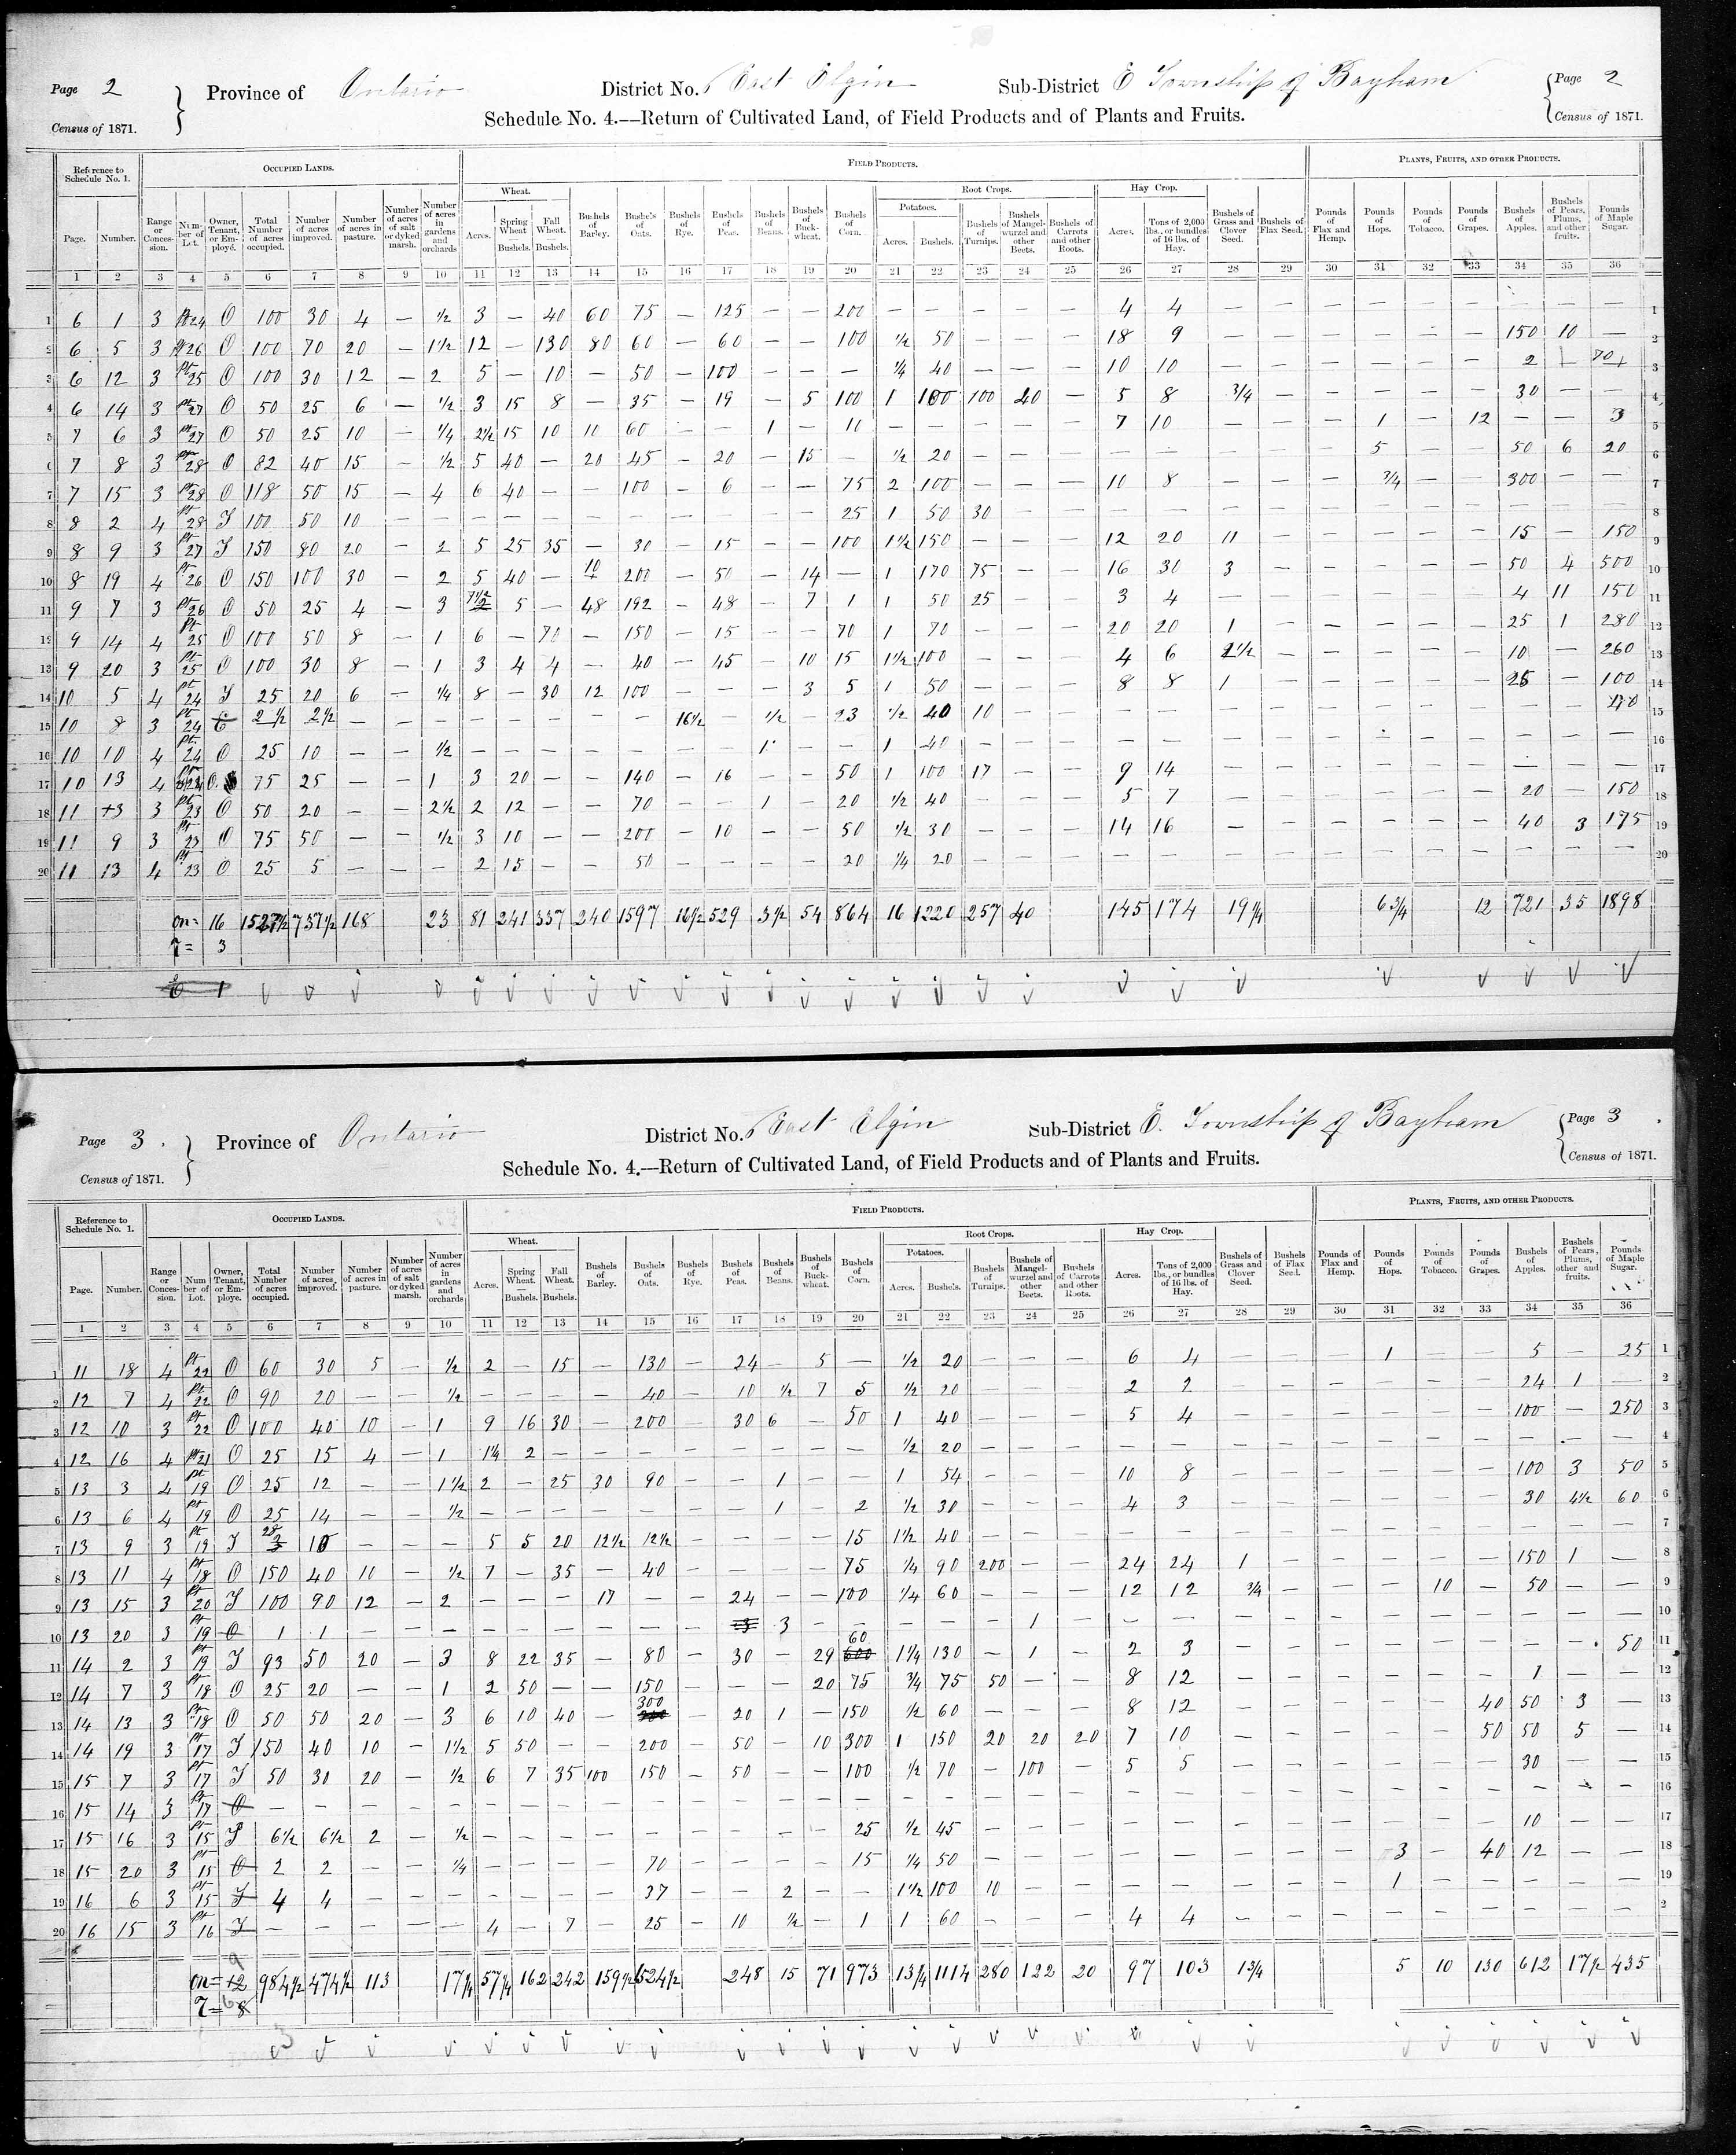 Page 2 } Province of Ontario District No. East Elgin Sub-District E Township of Bayham { Page 2
Census of 1871. Schedule No. 4.—Return of Cultivated Land, of Field Products and of Plants and Fruits. Census of 1871.
Reference to Schedule No. 1. OCCUPIED LANDS. FIELD PRODUCTS. PLANTS, FRUITS, AND OTHER PRODUCTS.
Wheat. Root Crops. Hay Crop.
Potatoes.
Page. Number. Range or Concession. Number of Lot. Owner, Tenant, or Employé. Total Number of acres occupied. Number of acres improved. Number of acres in pasture. Number of acres of salt or dyked marsh. Number of acres in gardens and orchards Acres. Spring Wheat — Bushels. Fall Wheat. — Bushels. Bushels of Barley. Bushels of Oats. Bushels of Rye. Bushels of Peas. Bushels of Beans. Bushels of Buck-wheat. Bushels of Corn. Acres. Bushels. Bushels of Turnips. Bushels of Mangel-wurzel and other Beets. Bushels of Carrots and other Roots. Acres. Tons of 2,000 lbs., or bundles of 16 lbs. of Hay. Bushels of Grass and Clover Seed. Bushels of Flax Seed. Pounds of Flax and Hemp. Pounds of Hops. Pounds of Tobacco. Pounds of Grapes. Bushels of Apples. Bushels of Pears, Plums, and other fruits. Pounds of Maple Sugar.
1 2 3 4 5 6 7 8 9 10 11 12 13 14 15 16 17 18 19 20 21 22 23 24 25 26 27 28 29 30 31 32 33 34 35 36
1 6 1 3 pt 24 O 100 30 4 — ½ 3 — 40 60 75 — 125 — — 200 — — — — — 4 4 — — — — — — — — — 1
2 6 5 3 pt 26 O 100 70 20 — 1½ 12 — 130 80 60 — 60 — — 100 ½ 50 — — — 18 9 — — — — — — 150 10 — 2
3 6 12 3 pt 25 O 100 30 12 — 2 5 — 10 — 50 — 100 — — — ¼ 40 — — — 10 10 — — — — — — 2 — 70 3
4 6 14 3 pt 27 O 50 25 6 — ½ 3 15 8 — 35 — 19 — 5 100 1 100 100 40 — 5 8 ¾ — — — — — 30 — — 4
5 7 6 3 pt 27 O 50 25 10 — ¼ 2½ 15 10 11 60 — — 1 — 11 — — — — — 7 10 — — — 1 — 12 — — 3 5
6 7 8 3 pt 28 O 82 40 15 — ½ 5 40 — 20 45 — 20 — 15 — ½ 20 — — — — — — — 5 — — 50 6 20 6
7 7 15 3 pt 28 O 118 50 15 — 4 6 40 — — 100 — 6 — — 75 2 100 — — — 10 8 — — — ¾ — — 300 — — 7
8 8 2 4 pt 28 T 100 50 10 — — — — — — — — — — — 25 1 50 30 — — — — — — — — — — — — — 8
9 8 9 3 pt 27 T 150 80 20 — 2 5 25 35 — 30 — 15 — — 100 1½ 150 — — — 12 20 11 — — — — — 15 — 150 9
10 8 19 4 pt 26 O 150 100 30 — 2 5 40 — 10 200 — 50 — 14 — 1 170 75 — — 16 30 3 — — — — — 50 4 500 10
11 9 7 3 pt 26 O 50 25 4 — 3 7½ 5 — 48 192 — 48 — 7 1 1 50 25 — — 3 4 — — — — — — 4 11 150 11
12 9 14 4 pt 25 O 100 50 8 — 1 6 — 70 — 150 — 15 — — 70 1 70 — — — 20 20 1 — — — — — 25 1 280 12
13 9 20 3 pt 25 O 100 30 8 — 1 3 4 4 — 40 — 45 — 10 15 1½ 100 — — — 4 6 2½ — — — — — 10 — 260 13
14 10 5 4 pt 24 T 25 20 6 — ¼ 8 — 30 12 100 — — — 3 5 1 50 — — — 8 8 1 — — — — — 25 — 100 14
15 10 8 3 pt 24 E 2½ 2½ — — — — — — — — 16½ — ½ — 23 ½ 40 10 — — — — — — — — — — — — 40 15
16 10 10 4 pt. 24 O 25 10 — — ½ — — — — — — — 1 — — 1 40 — — — — — — — — — — — — — — 16
17 10 13 4 24 O. 75 25 — — 1 3 20 — — 140 — 16 — — 50 1 100 17 — — 9 14 — — — — — — — — — 17
18 11 3 3 pt 23 O 50 20 — 2½ 2 12 — — 70 — — 1 — 20 ½ 40 — — — 5 7 — — — — — — 20 — 150 18
19 11 9 3 pt 23 O 75 50 — ½ 3 10 — — 200 — 10 — — 50 ½ 30 — — — 14 16 — — — — — — 40 3 175 19
20 11 13 4 pt 23 O 25 5 — — — 2 15 — — 50 — — — — 20 ¼ 20 — — — — — — — — — — — — — — 20
on= 16 1527½ 737½ 168 23 81 241 337 240 1597 16½ 529 3½ 54 864 16 1220 257 40 145 174 19¼ 6¾ 12 721 35 1898
T= 3
E 1
Page 3. } Province of Ontario District No. East Elgin Sub-District E. Township of Bayham { Page 3
Census of 1871. Schedule No. 4.—Return of Cultivated Land, of Field Products and of Plants and Fruits. Census of 1871.
Reference to Schedule No. 1. OCCUPIED LANDS. FIELD PRODUCTS. PLANTS, FRUITS, AND OTHER PRODUCTS.
Wheat. Root Crops. Hay Crop.
Potatoes.
Page. Number. Range or Concession. Number of Lot. Owner, Tenant, or Employe. Total Number of acres occupied. Number of acres improved. Number of acres in pasture. Number of acres of salt or dyked marsh. Number of acres in gardens and orchards Acres. Spring Wheat. — Bushels. Fall Wheat. — Bushels. Bushels of Barley. Bushels of Oats. Bushels of Rye. Bushels of Peas. Bushels of Beans. Bushels of Buck-wheat. Bushels of Corn. Acres. Bushels. Bushels of Turnips. Bushels of Mangel-wurzel and other Beets. Bushels of Carrots and other Roots. Acres. Tons of 2,000 lbs., or bundles of 16 lbs. of Hay. Bushels of Grass and Clover Seed. Bushels of Flax Seed. Pounds of Flax and Hemp. Pounds of Hops. Pounds of Tobacco. Pounds of Grapes. Bushels of Apples. Bushels of Pears, Plums, other and fruits. Pounds of Maple Sugar.
1 2 3 4 5 6 7 8 9 10 11 12 13 14 15 16 17 18 19 20 21 22 23 24 25 26 27 28 29 30 31 32 33 34 35 36
1 11 18 4 pt 22 O 60 30 5 — ½ 2 — 15 — 130 — 24 — 5 — ½ 20 — — — 6 4 — — — 1 — — 5 — 25 1
2 12 7 4 pt 22 O 90 20 — — ½ — — — — 40 — 10 ½ 7 5 ½ 20 — — — 2 2 — — — — — — 24 1 — 2
3 12 10 3 pt 22 O 100 40 10 — 1 9 16 30 — 200 — 30 6 — 50 1 40 — — — 5 4 — — — — — — 100 — 250 3
4 12 16 4 pt 21 O 25 15 4 — 1 1¼ 2 — — — — — — — — ½ 20 — — — — — — — — — — — — — — 4
5 13 3 4 pt 19 O 25 12 — — 1½ 2 — 25 30 90 — — 1 — — 1 54 — — — 10 8 — — — — — — 100 3 50 5
6 13 6 4 pt 19 O 25 14 — — ½ — — — — — — — 1 — 2 ½ 30 — — — 4 3 — — — — — — 30 4½ 60 6
7 13 9 3 pt 19 T 28 10 — — — 5 5 20 12½ 12½ — — — — 15 1½ 40 — — — — — — — — — — — — — — 7
8 13 11 4 pt 18 O 150 40 10 — ½ 7 — 35 — 40 — — — — 75 ¼ 90 200 — — 24 24 1 — — — — — 150 1 — 8
9 13 15 3 pt 20 T 100 90 12 — 2 — — — 17 — — 24 — — 100 ¼ 60 — — — 12 12 ¾ — — — 10 — 50 — — 9
10 13 20 3 pt 19 O 1 1 — — — — — — — — — 3 3 — — — — — 1 — — — — — — — — — — — 10
11 14 2 3 pt 19 T 93 50 20 — 3 8 22 35 — 80 — 30 — 29 600 60 1¼ 130 — 1 — 2 3 — — — — — — — — 50 11
12 14 7 3 pt 18 O 25 20 — — 1 2 50 — — 150 — — — 20 75 ¾ 75 50 — — 8 12 — — — — — — 1 — — 12
13 14 13 3 pt 18 O 50 50 20 — 3 6 10 40 — 300 — 20 1 — 150 ½ 60 — — — 8 12 — — — — — 40 50 3 — 13
14 14 19 3 pt 17 T 150 40 10 — 1½ 5 50 — — 200 — 50 — 10 300 1 150 20 20 20 7 10 — — — — — 50 50 5 — 14
15 15 7 3 pt 17 T 50 30 20 — ½ 6 7 35 100 150 — 50 — — 100 ½ 70 — 100 — 5 5 — — — — — — 30 — — 15
16 15 14 3 pt 17 O — — — — — — — — — — — — — — — — — — — — — — — — — — — — — — — 16
17 15 16 3 pt 15 T 6½ 6½ 2 — ½ — — — — — — — — — 25 ½ 45 — — — — — — — — — — — 10 — — 17
18 15 20 3 pt 15 O 2 2 — — ¼ — — — — 70 — — — — 15 ¼ 50 — — — — — — — — 3 — 40 12 — — 18
19 16 6 3 pt 15 T 4 4 — — — — — — — 37 — — 2 — — 1½ 100 10 — — — — — — — 1 — — — — — 19
20 16 15 3 pt 16 T — — — — — 4 — 7 — 25 — 10 ½ — 1 1 60 — — — 4 4 — — — — — — — — — 2
on= 12 9 984½ 474½ 113 17¼ 57¼ 162 242 159½ 1524½ 248 15 71 973 13¼ 1114 280 122 20 97 103 1¾ 5 10 130 612 17½ 435
T= 8 6
3